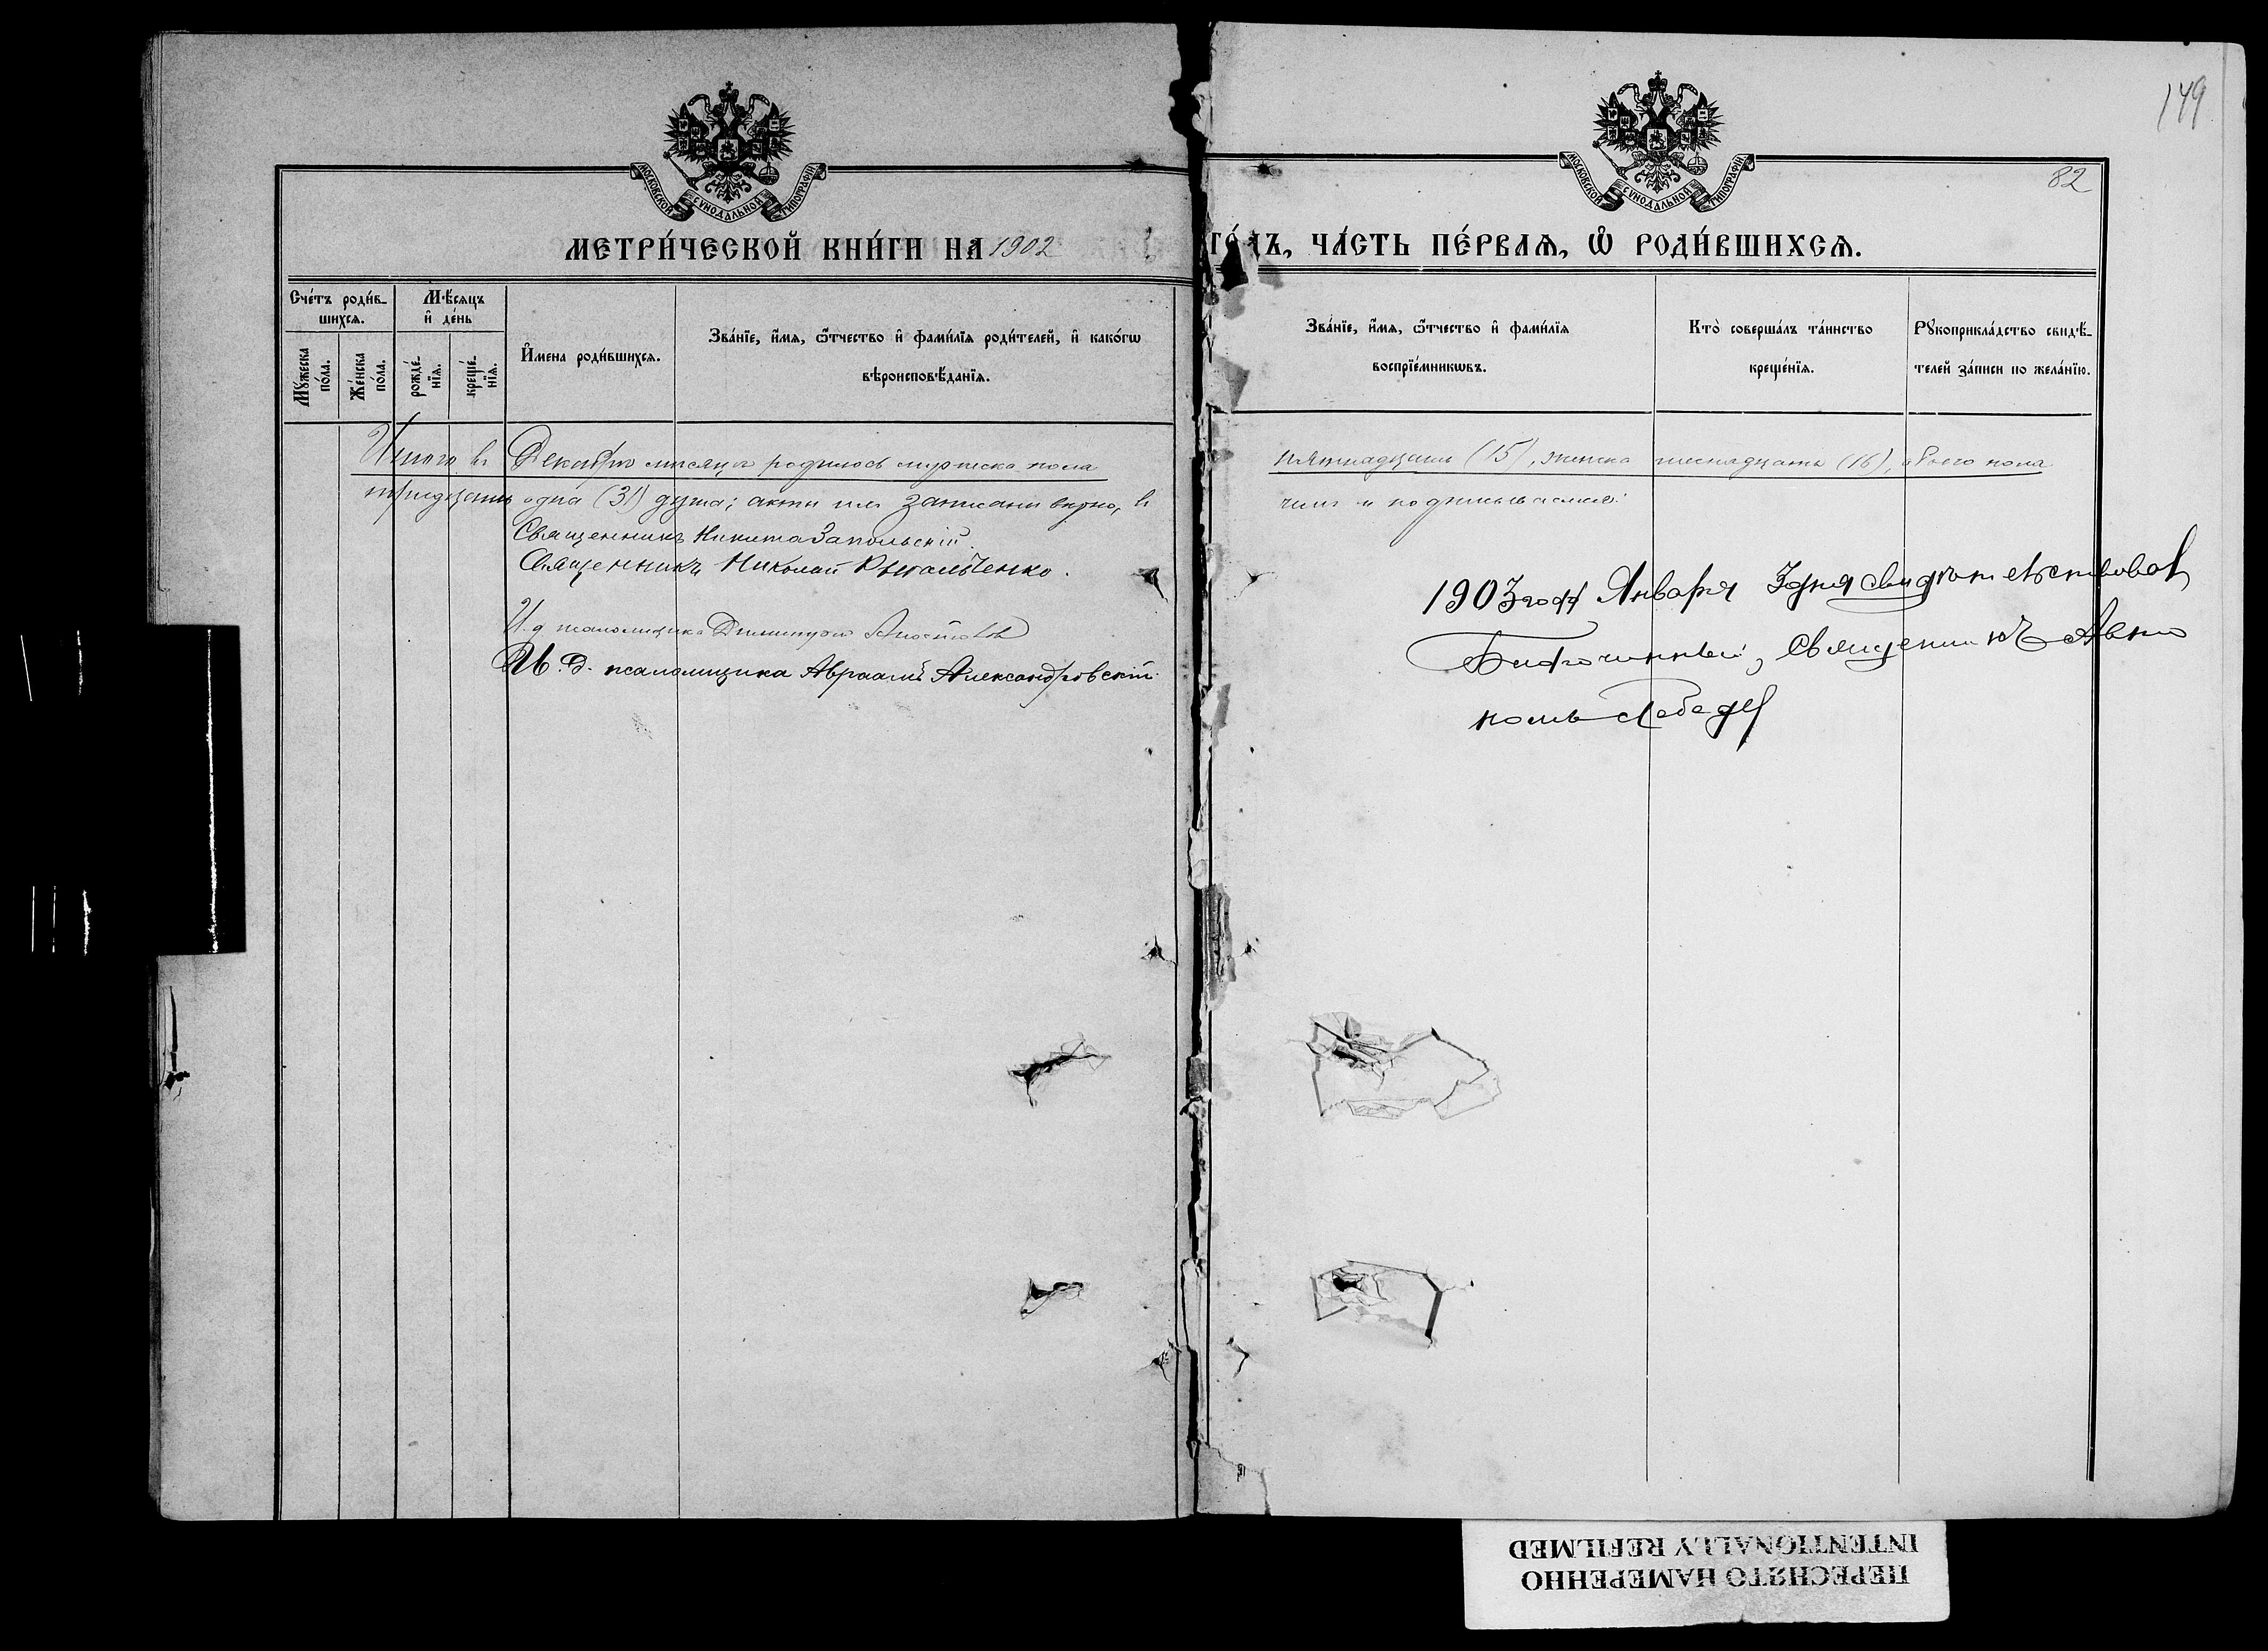 149
82
МОСКОВСКОЙ СѴНОДАЛЬНОЙ ТИПОГРАФІИ
МОСКОВСКОЙ СѴНОДАЛЬНОЙ ТИПОГРАФІИ
МЕТРИ́ЧЕСКОЙ КНИ́ГИ НА 1902 ГО́ДЪ, ЧА́СТЬ ПЕ́РВАѦ, Ѡ҆ РОДИ́ВШИХСѦ.
Сче́тъ роди́в-
шихсѧ.
Мꙋ́жеска по́ла.
Же́нска по́ла.
Мѣ́сѧцъ
и҆ де́нь
рожде́-нїѧ.
креще́-нїѧ.
И҆мена роди́вшихсѧ.
Зва́нїе, и҆́мѧ, ѻ҆́тчество и҆ фами́лїѧ роди́телей, и҆ како́гѡ
вѣроисповѣ́данїѧ.
Зва́нїе, и҆́мѧ, ѻ҆́тчество и҆ фами́лїѧ
воспрїе́мникѡвъ.
Кто̀ соверша́лъ та́инство
креще́нїѧ.
Рꙋкоприкла́дство свидѣ́-
телей за́писи по жела́нїю.
Итого въ Декабрѣ мѣсяцѣ родилось мужеска пола пятнадцать (15), женска шестнадцать (16), обоего пола
тридцать одна (31) душа; акты сіи записаны вѣрно, въ чемъ и подписываемся:
Священникъ Никита Запольскій.
Священникъ Николай
И. д. псаломщика Димитрій
И. д. псаломщика Авраамъ Александровскій.
1903 года Января 3 дня свидѣтельствовалъ
Благочинный, Священникъ Авкс
Лебедев
ПЕРЕСНЯТО НАМЕРЕННО
INTENTIONALLY REFILMED